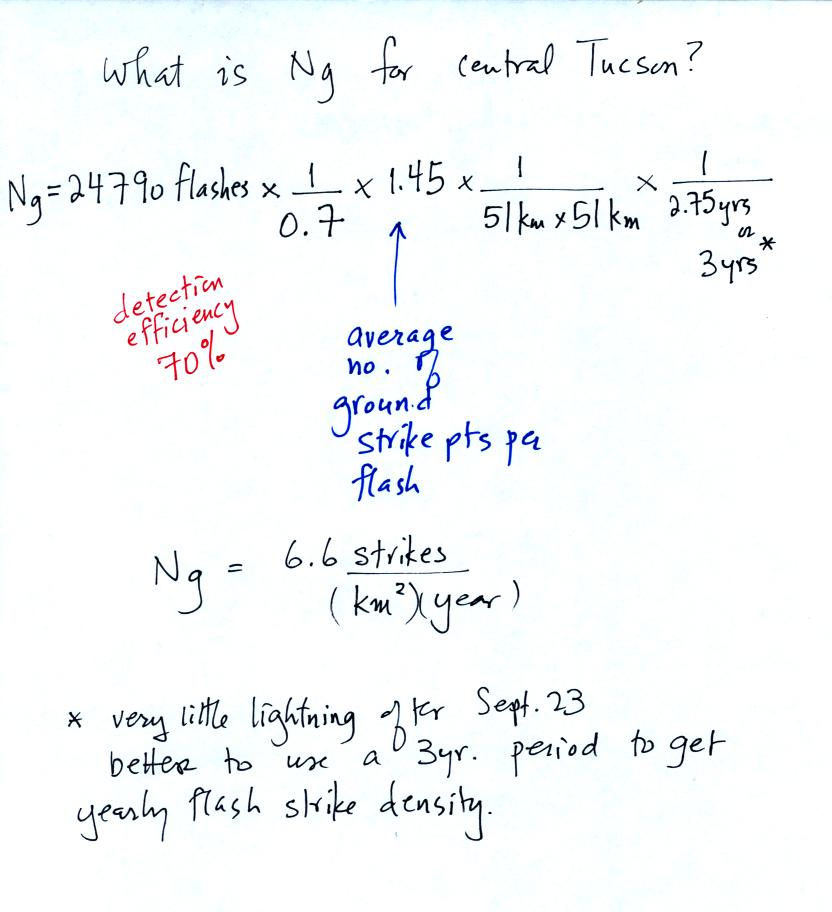 What is Ng for central Tucson?
Ng = 24790 flashes × 1/0.7 × 1.45 × 1/(51 km × 51 km) × 1/2.75 yrs
or
3 yrs *
detection
efficiency
70%
average
no. of
ground
strike pts per
flash
Ng = 6.6 strikes/(km²)(year)
* very little lightning after Sept. 23
better to use a 3yr. period to get
yearly flash strike density.